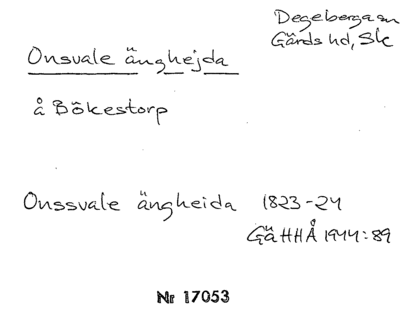 Degeberga sn
Gärds hd, Sk
Onsvale änghejda
å Bökestorp
Onssvale ängheida 1823-24
GäHHÅ 1944:89
Nr 17053